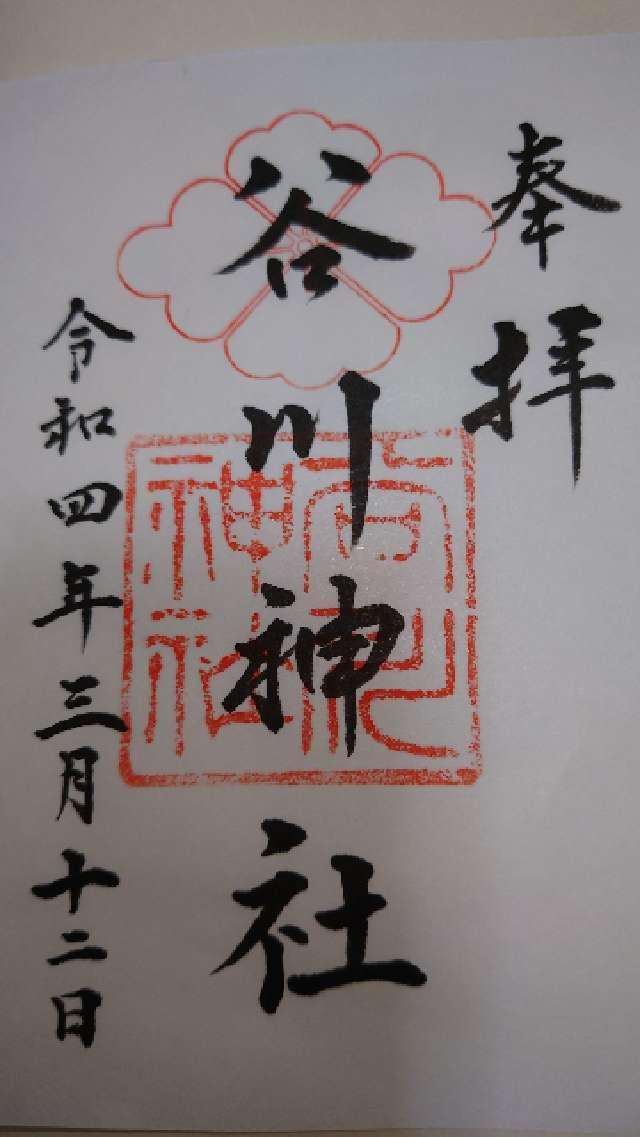 奉拝
谷川神社
令和四年三月十二日